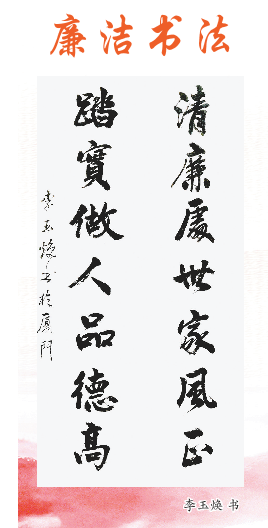 廉洁书法
清廉處世家風正
踏實做人品德高
李玉焕书於厦门
李玉焕 书